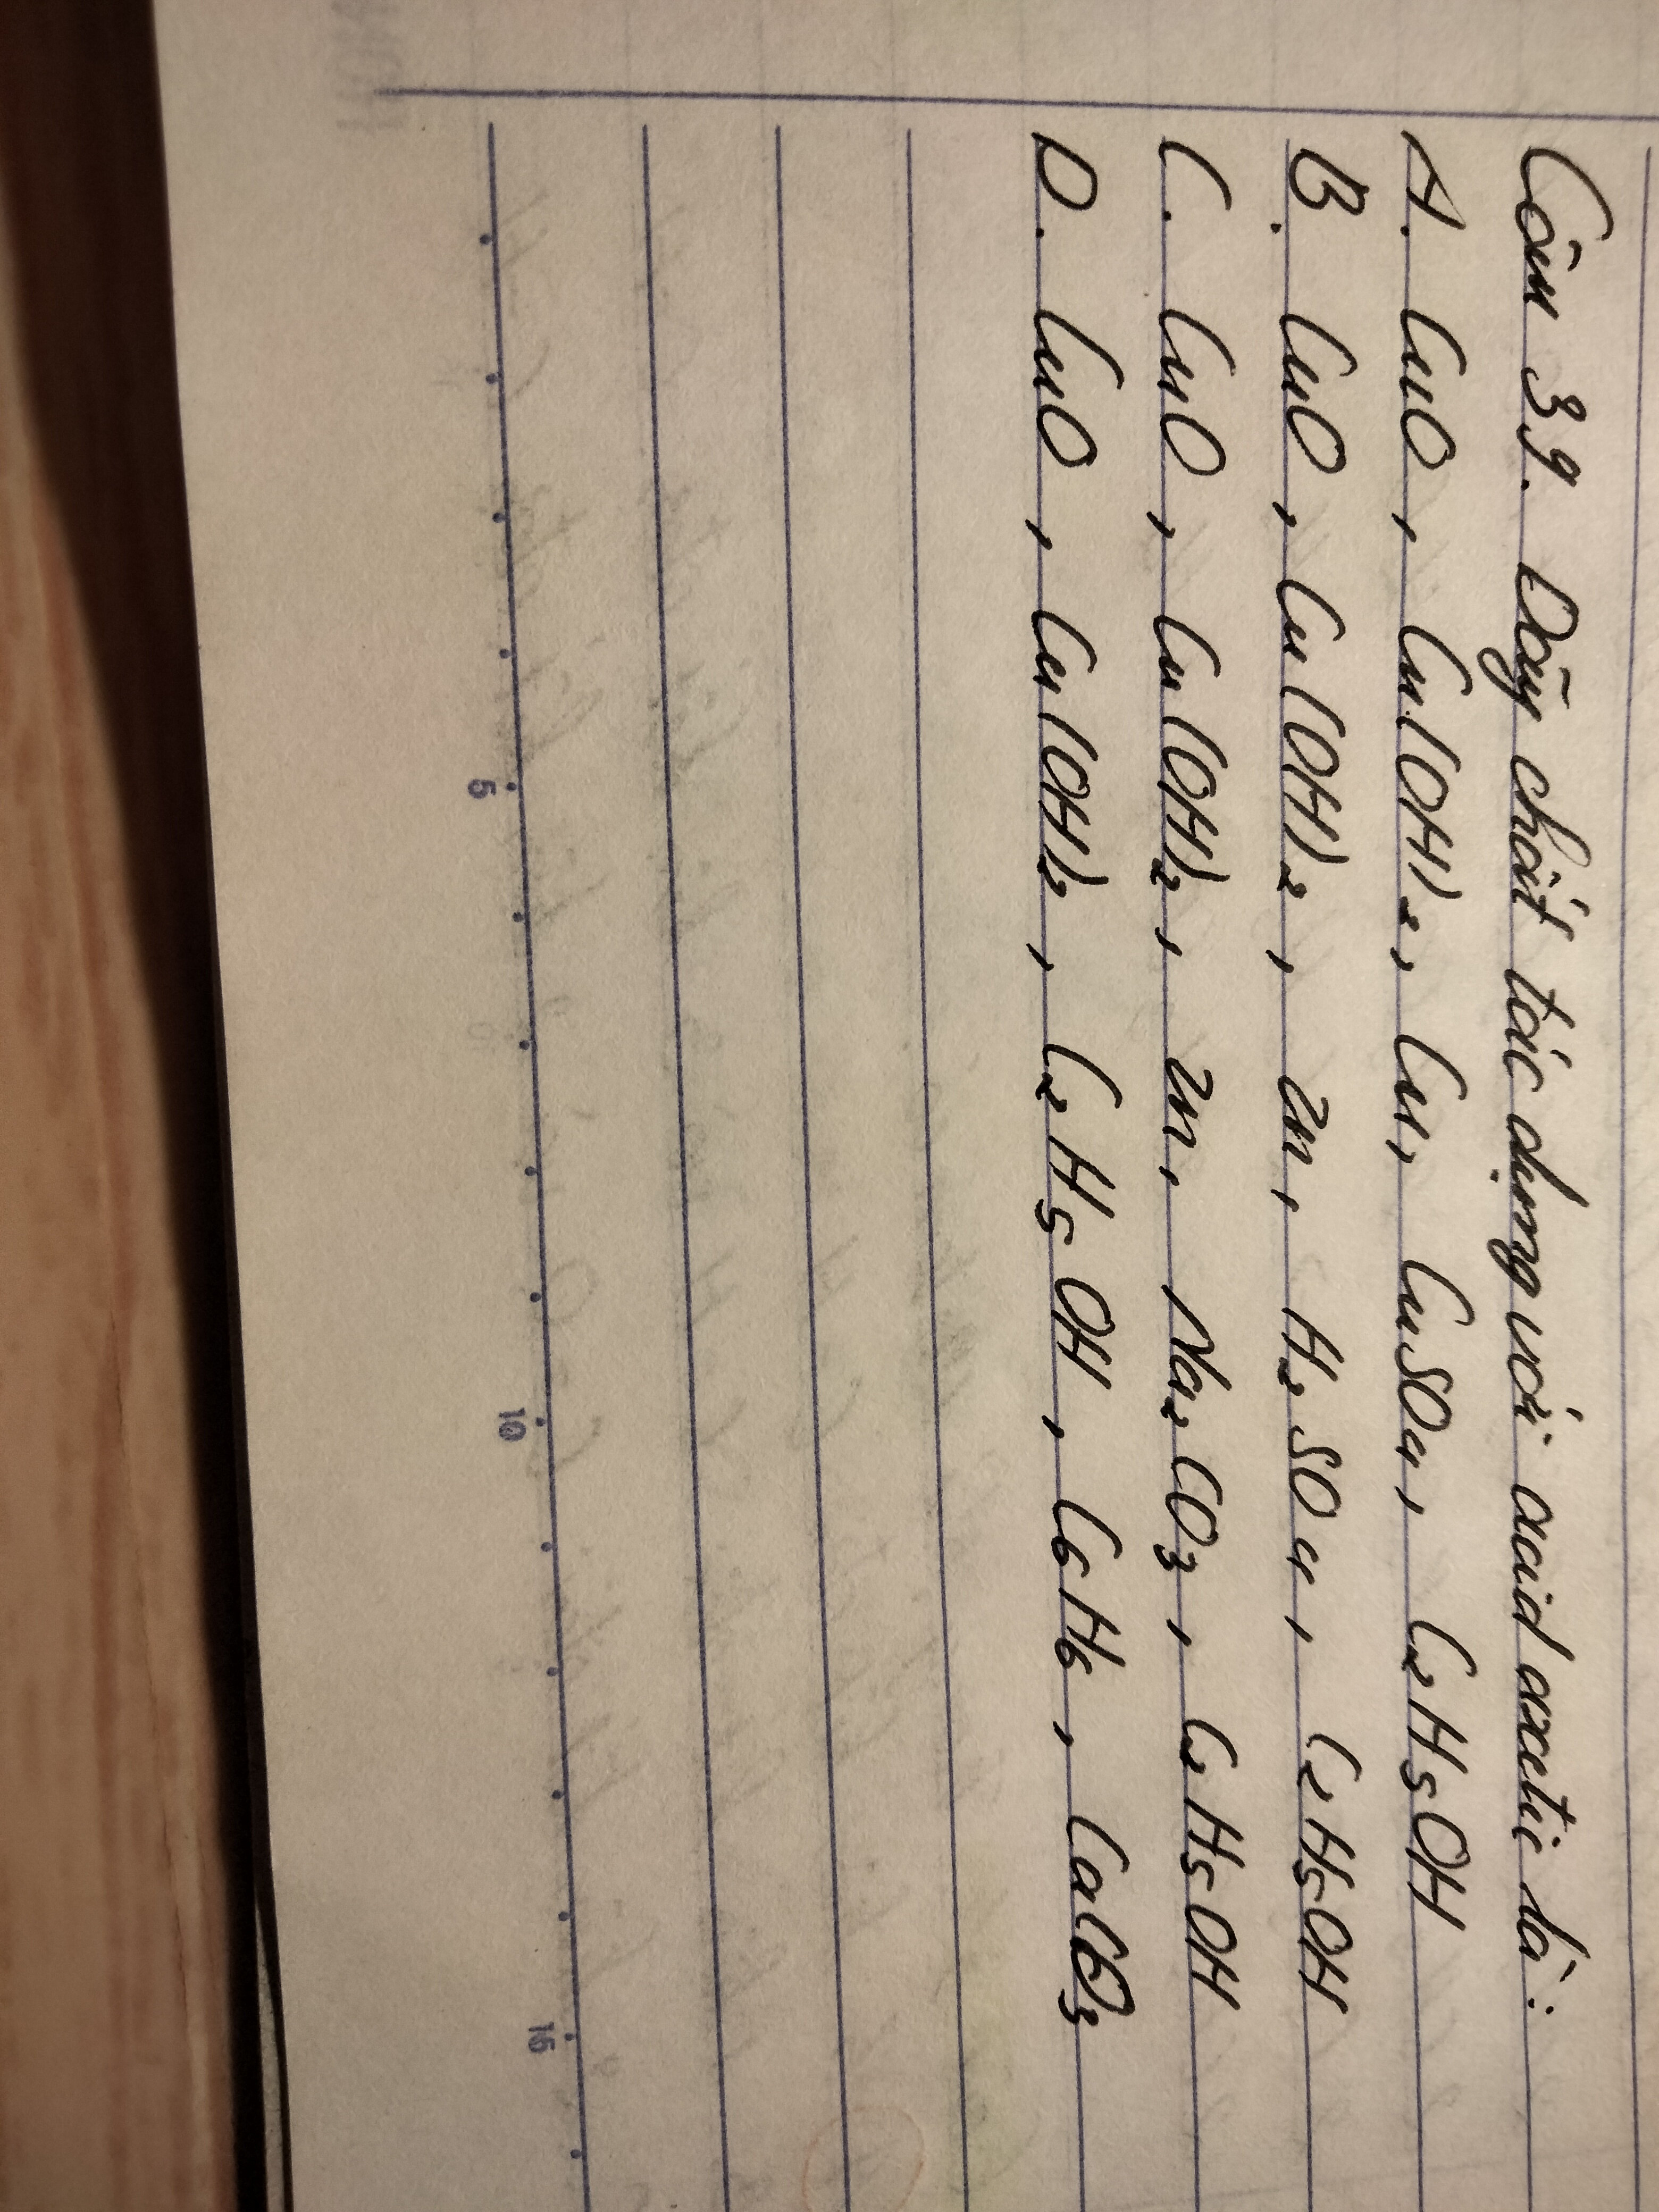 Câu 39. Dãy chất tác dụng với acid axetic là:
A. CuO, Cu(OH)₂, Cu, CuSO₄, C₂H₅OH
B. CuO, Cu(OH)₂, Zn, H₂SO₄, C₂H₅OH
C. CuO, Cu(OH)₂, Zn, Na₂CO₃, C₂H₅OH
D. CuO, Cu(OH)₂, C₂H₅OH, C₆H₆, CaCO₃
5
10
15